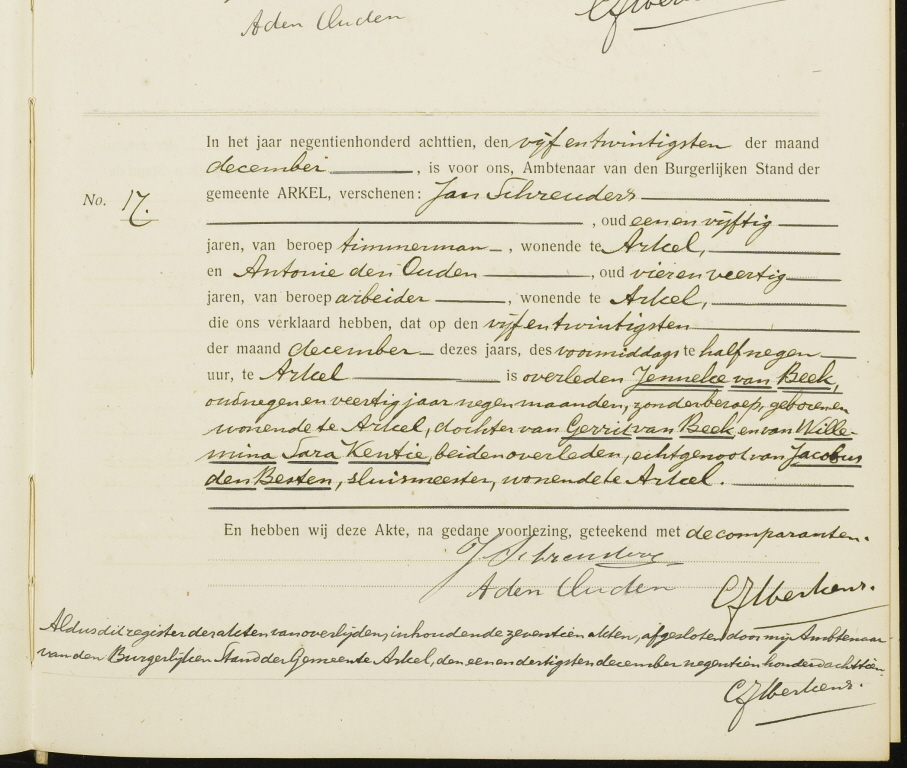 A den Ouden
In het jaar negentienhonderd achttien, den vijf en twintigsten der maand
december, is voor ons, Ambtenaar van den Burgerlijken Stand der
No. 17. gemeente ARKEL, verschenen: Jan Schreuders
, oud een en vijftig
jaren, van beroep timmerman, wonende te Arkel,
en Antonie den Ouden, oud vier en veertig
jaren, van beroep arbeider, wonende te Arkel,
die ons verklaard hebben, dat op den vijf en twintigsten
der maand december dezes jaars, des voormiddags te half negen
uur, te Arkel is overleden Jenneke van Beek,
oud negen en veertig jaar negen maanden, zonder beroep, geboren en
wonende te Arkel, dochter van Gerrit van Beek en van Wille-
mina Sara Kentie, beiden overleden, echtgenoot van Jacobus
den Besten, sluismeester, wonende te Arkel.
En hebben wij deze Akte, na gedane voorlezing, geteekend met de comparanten.
J Schreuders
A den Ouden
Aldus dit register der akten van overlijden, inhoudende zeventien akten, afgesloten door mij Ambtenaar
van den Burgerlijken Stand der Gemeente Arkel, den een en dertigsten december negentienhonderd achttien.